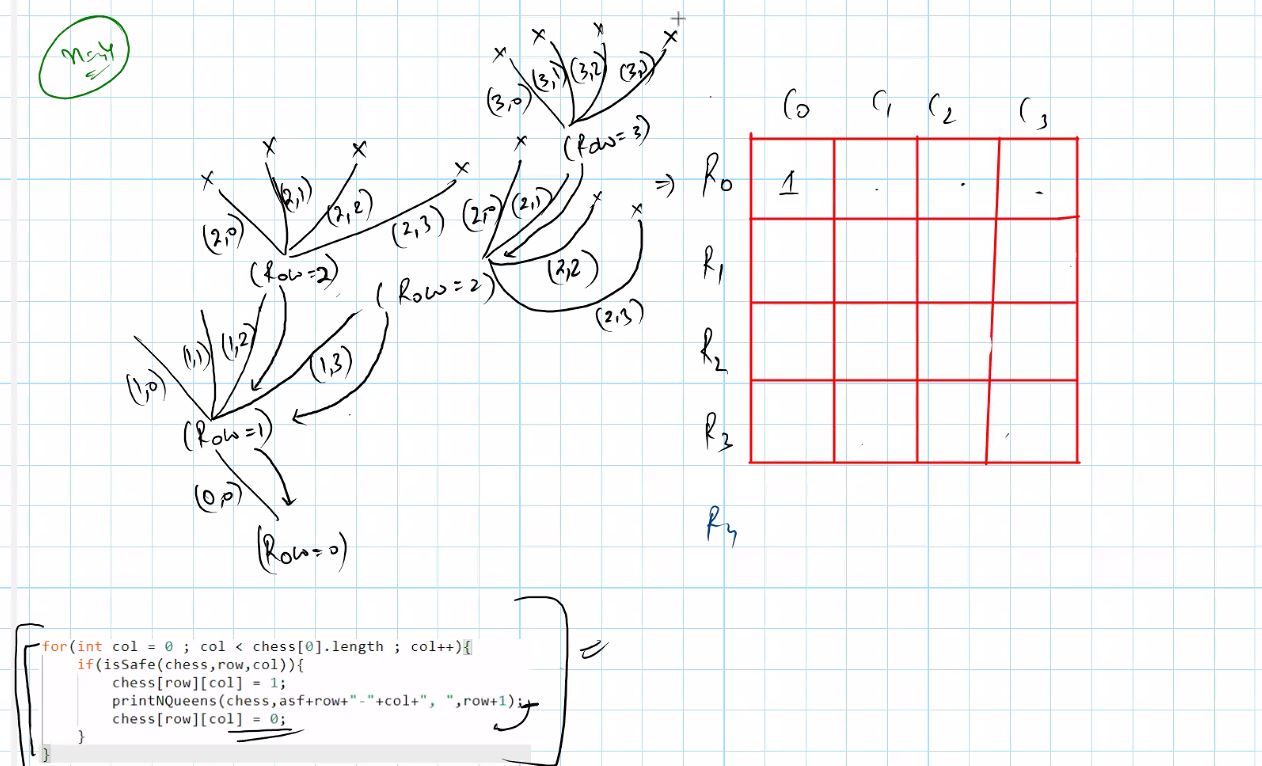 n=4
x x x x
(3,0) (3,1) (3,2) (3,3)
(Row=3)
x x x x
(2,0) (2,1) (2,2) (2,3)
(Row=2)
x x x
(2,0) (2,1) (2,2) (2,3)
(Row=2)
(1,0) (1,1) (1,2) (1,3)
(Row=1)
(0,0)
(Row=0)
C0 C1 C2 C3
⇒ R0 1 . . .
R1
R2
R3
R4
for(int col = 0 ; col < chess[0].length ; col++){
if(isSafe(chess,row,col)){
chess[row][col] = 1;
printNQueens(chess,asf+row+"-"+col+", ",row+1);
chess[row][col] = 0;
}
}
=